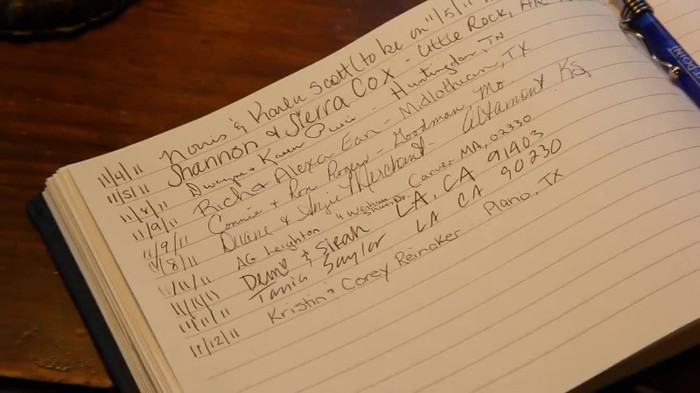 11/4/11 Norris & Karen Scott (to be on 11/5/11
11/5/11 Shannon & Sierra Cox - Little Rock, AR
11/8/11 Dwayne & Karen - Huntingdon, TN
11/9/11 Rich & Alexa Earl - Midlothian, TX
11/9/11 Connie & Ron Rogers - Goodman, Mo
11/8/11 Duane & Angie Merchant - Altamont Ks
11/11/11 AG Leighton Carver, MA, 02330
11/11/11 Demo & Sirah LA, CA 91403
11/11/11 Tania Saylor LA CA 90230
11/12/11 Kristin & Corey Reinaker Plano, TX
POINT